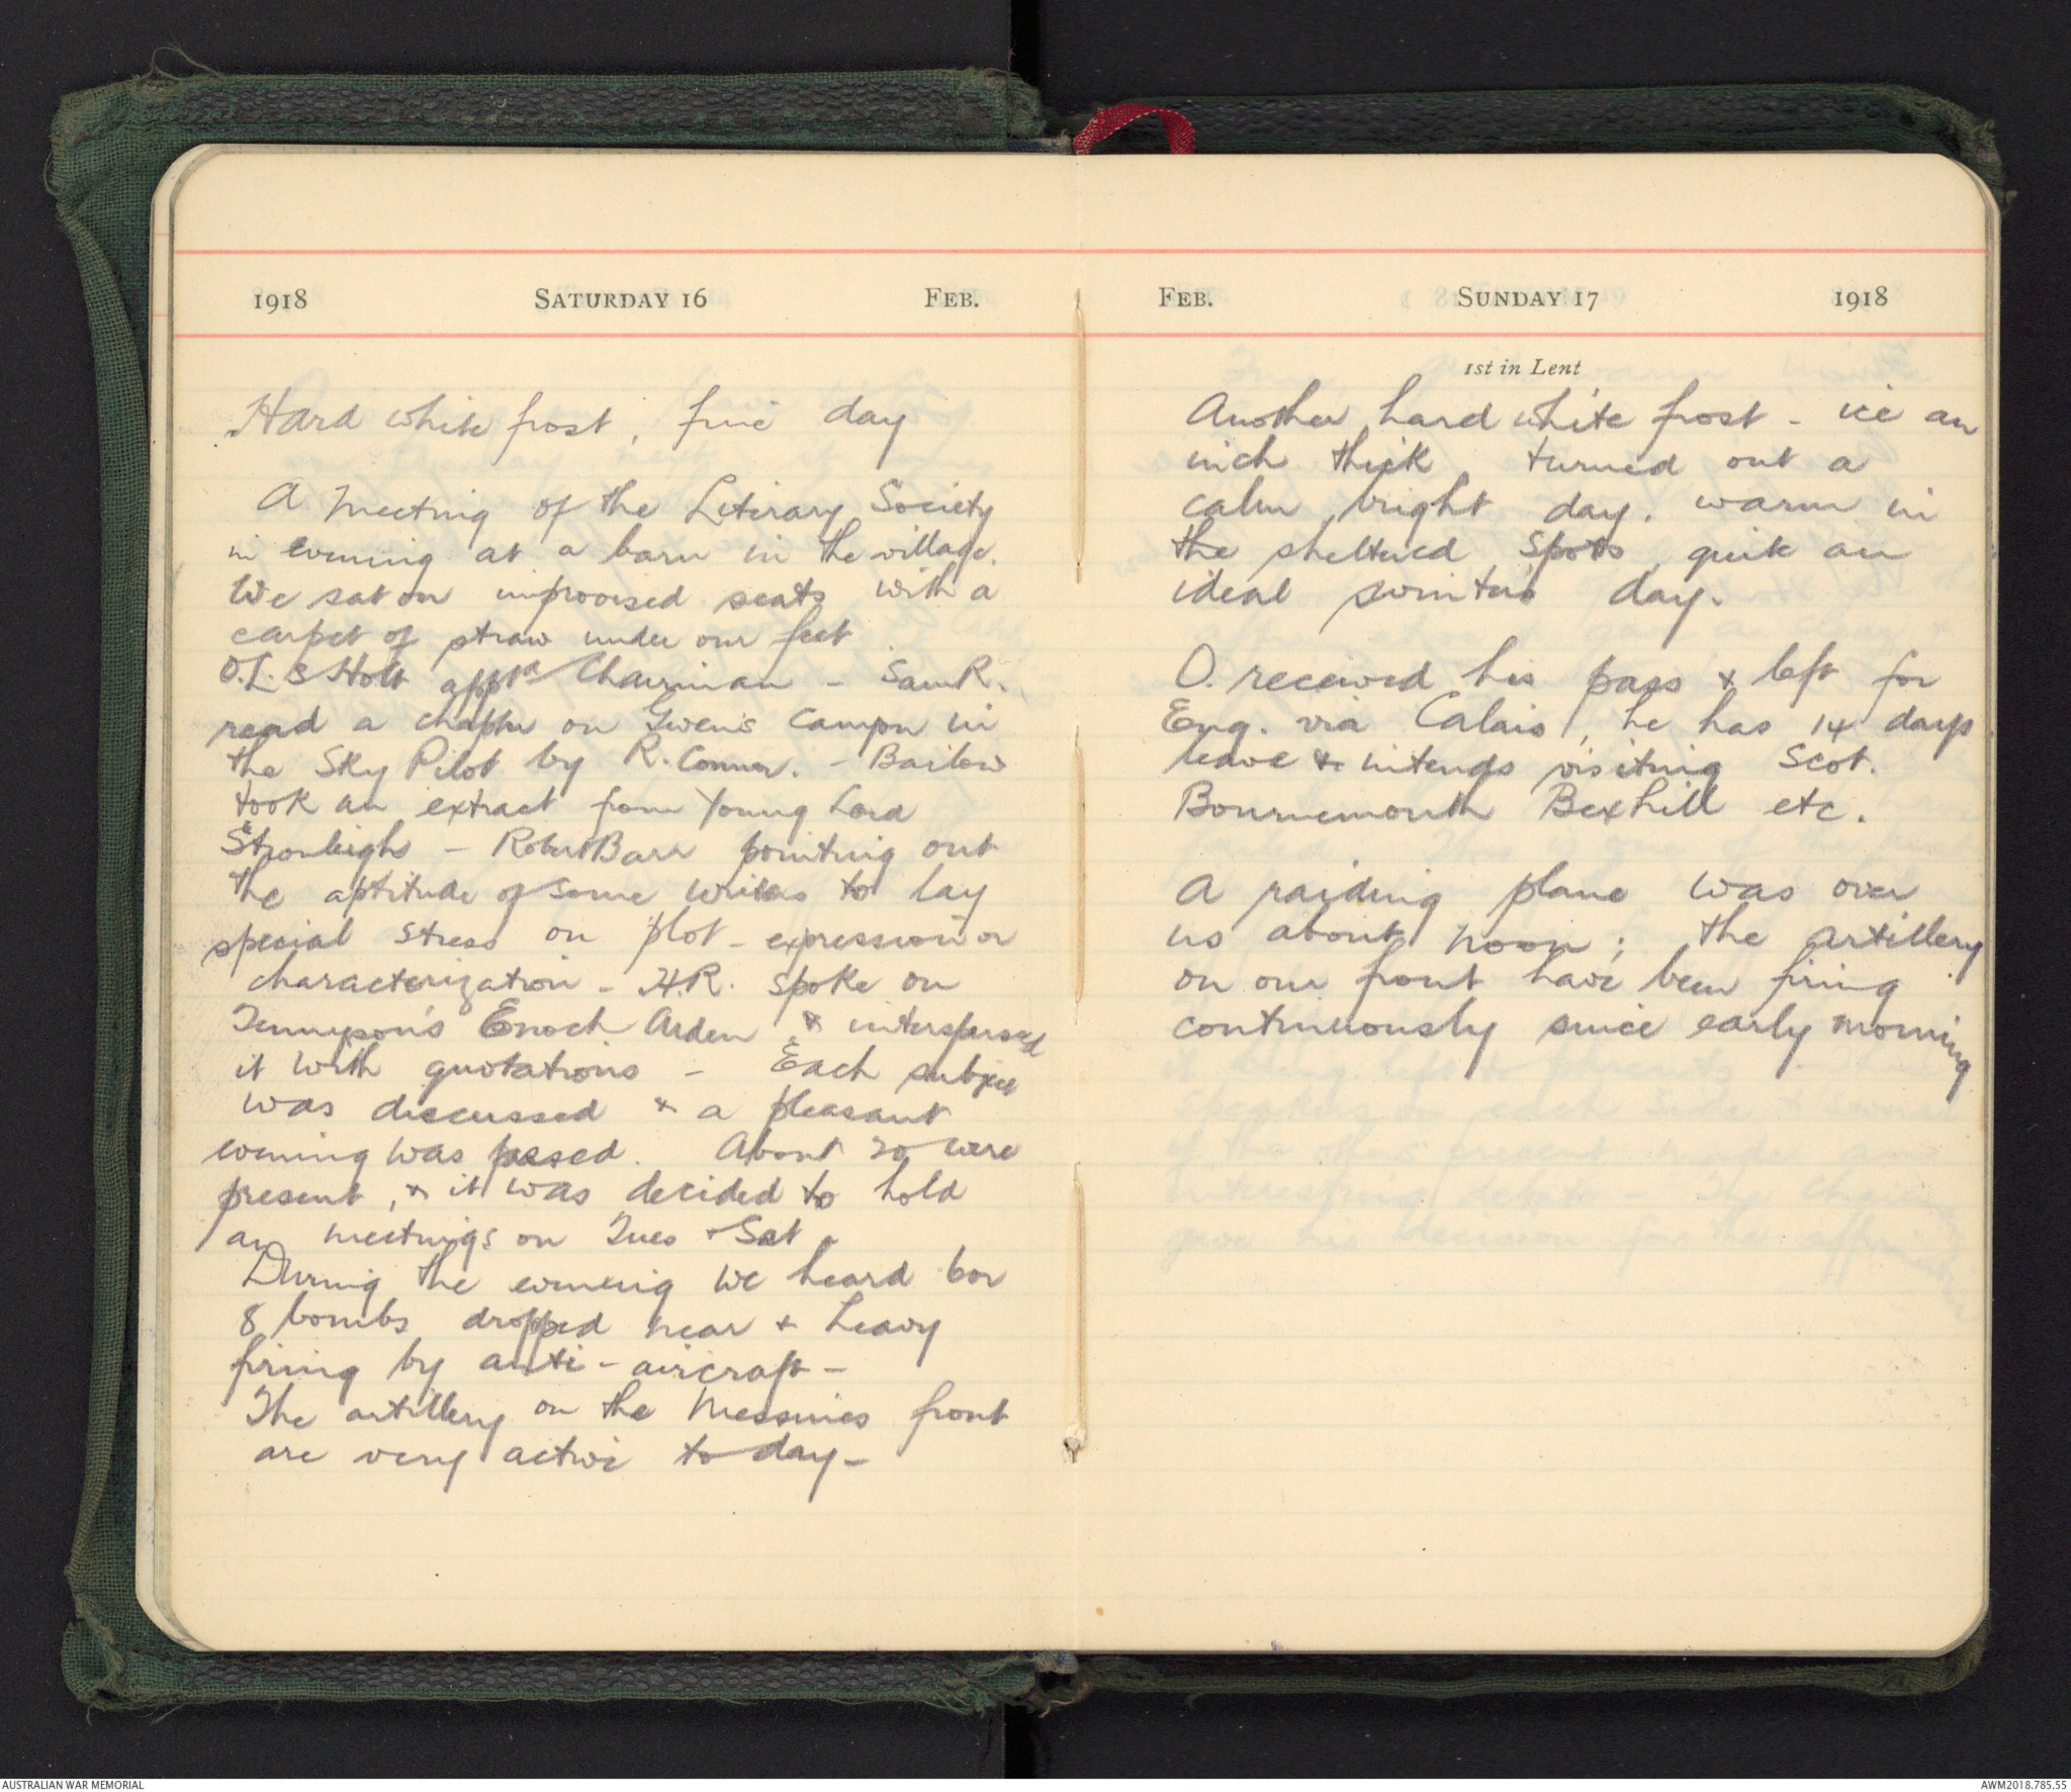 1918 SATURDAY 16 FEB.
Hard white frost, fine day
A meeting of the Literary Society
in evening at a barn in the village.
We sat on improvised seats with a
carpet of straw under our feet
O.L.S Holt appt'd Chairman - Sam R.
read a chapter on Gwen's Canyon in
the Sky Pilot by R. Connor. - Bailow
took an extract from Young Lord
Stranleigh - Robert Barr pointing out
the aptitude of some writers to lay
special stress on plot - expression or
characterization - H.R. spoke on
Tennyson's Enoch Arden & interspersed
it with quotations - Each subject
was discussed & a pleasant
evening was passed. About 20 were
present, & it was decided to hold
an meetings on Tues & Sat.
During the evening we heard 6 or
8 bombs dropped near & heavy
firing by anti-aircraft -
The artillery on the Messines front
are very active to day -
FEB. SUNDAY 17 1918
1st in Lent
Another hard white frost - ice an
inch thick, turned out a
calm bright day. warm in
the sheltered spots, quite an
ideal winters day.
O. received his pass & left for
Eng. via Calais, he has 14 days
leave & intends visiting Scot.
Bournemouth Bexhill etc.
A raiding plane was over
us about noon; the artillery
on our front have been firing
continuously since early morning
AUSTRALIAN WAR MEMORIAL
AWM2018.785.55